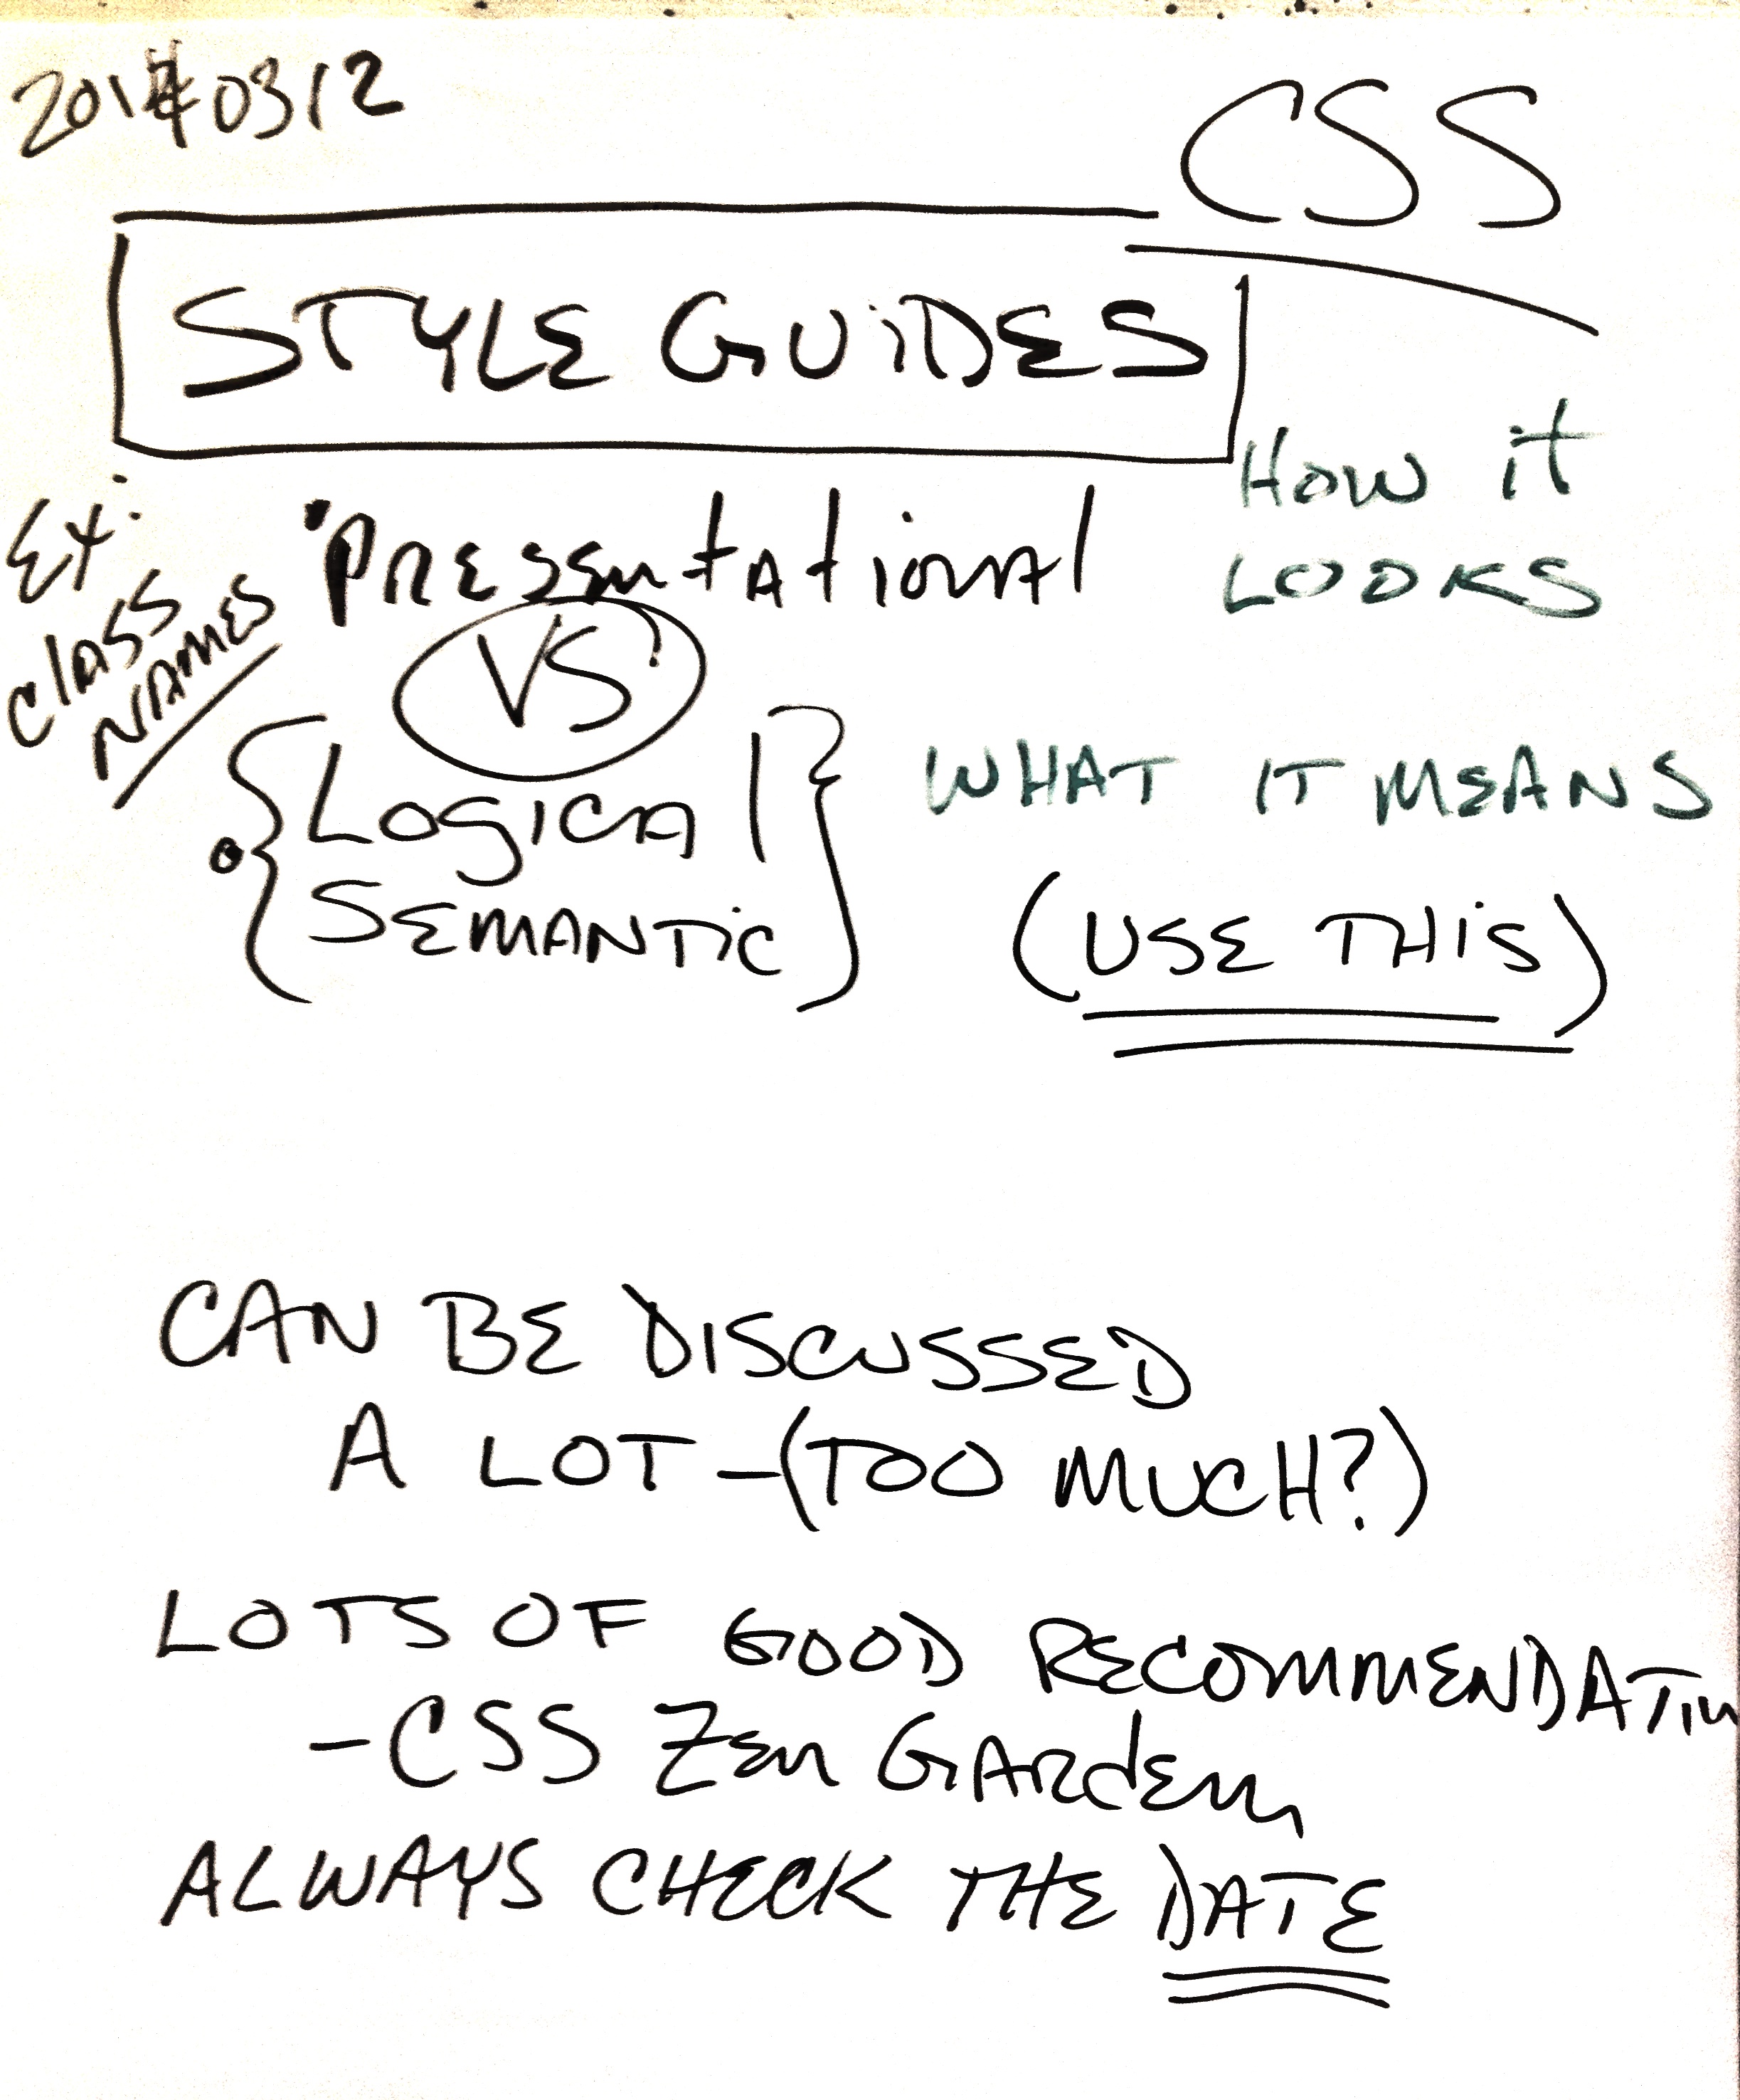 20140312
CSS
STYLE GUIDES
Ex:
CLASS
NAMES
Presentational
How it
LOOKS
VS
Logical
SEMANTiC
WHAT IT MEANS
(USE THiS)
CAN BE DISCUSSED
A LOT - (TOO MUCH?)
LOTS OF GOOD RECOMMENDATIN
- CSS Zen GARden
ALWAYS CHECK THE DATE